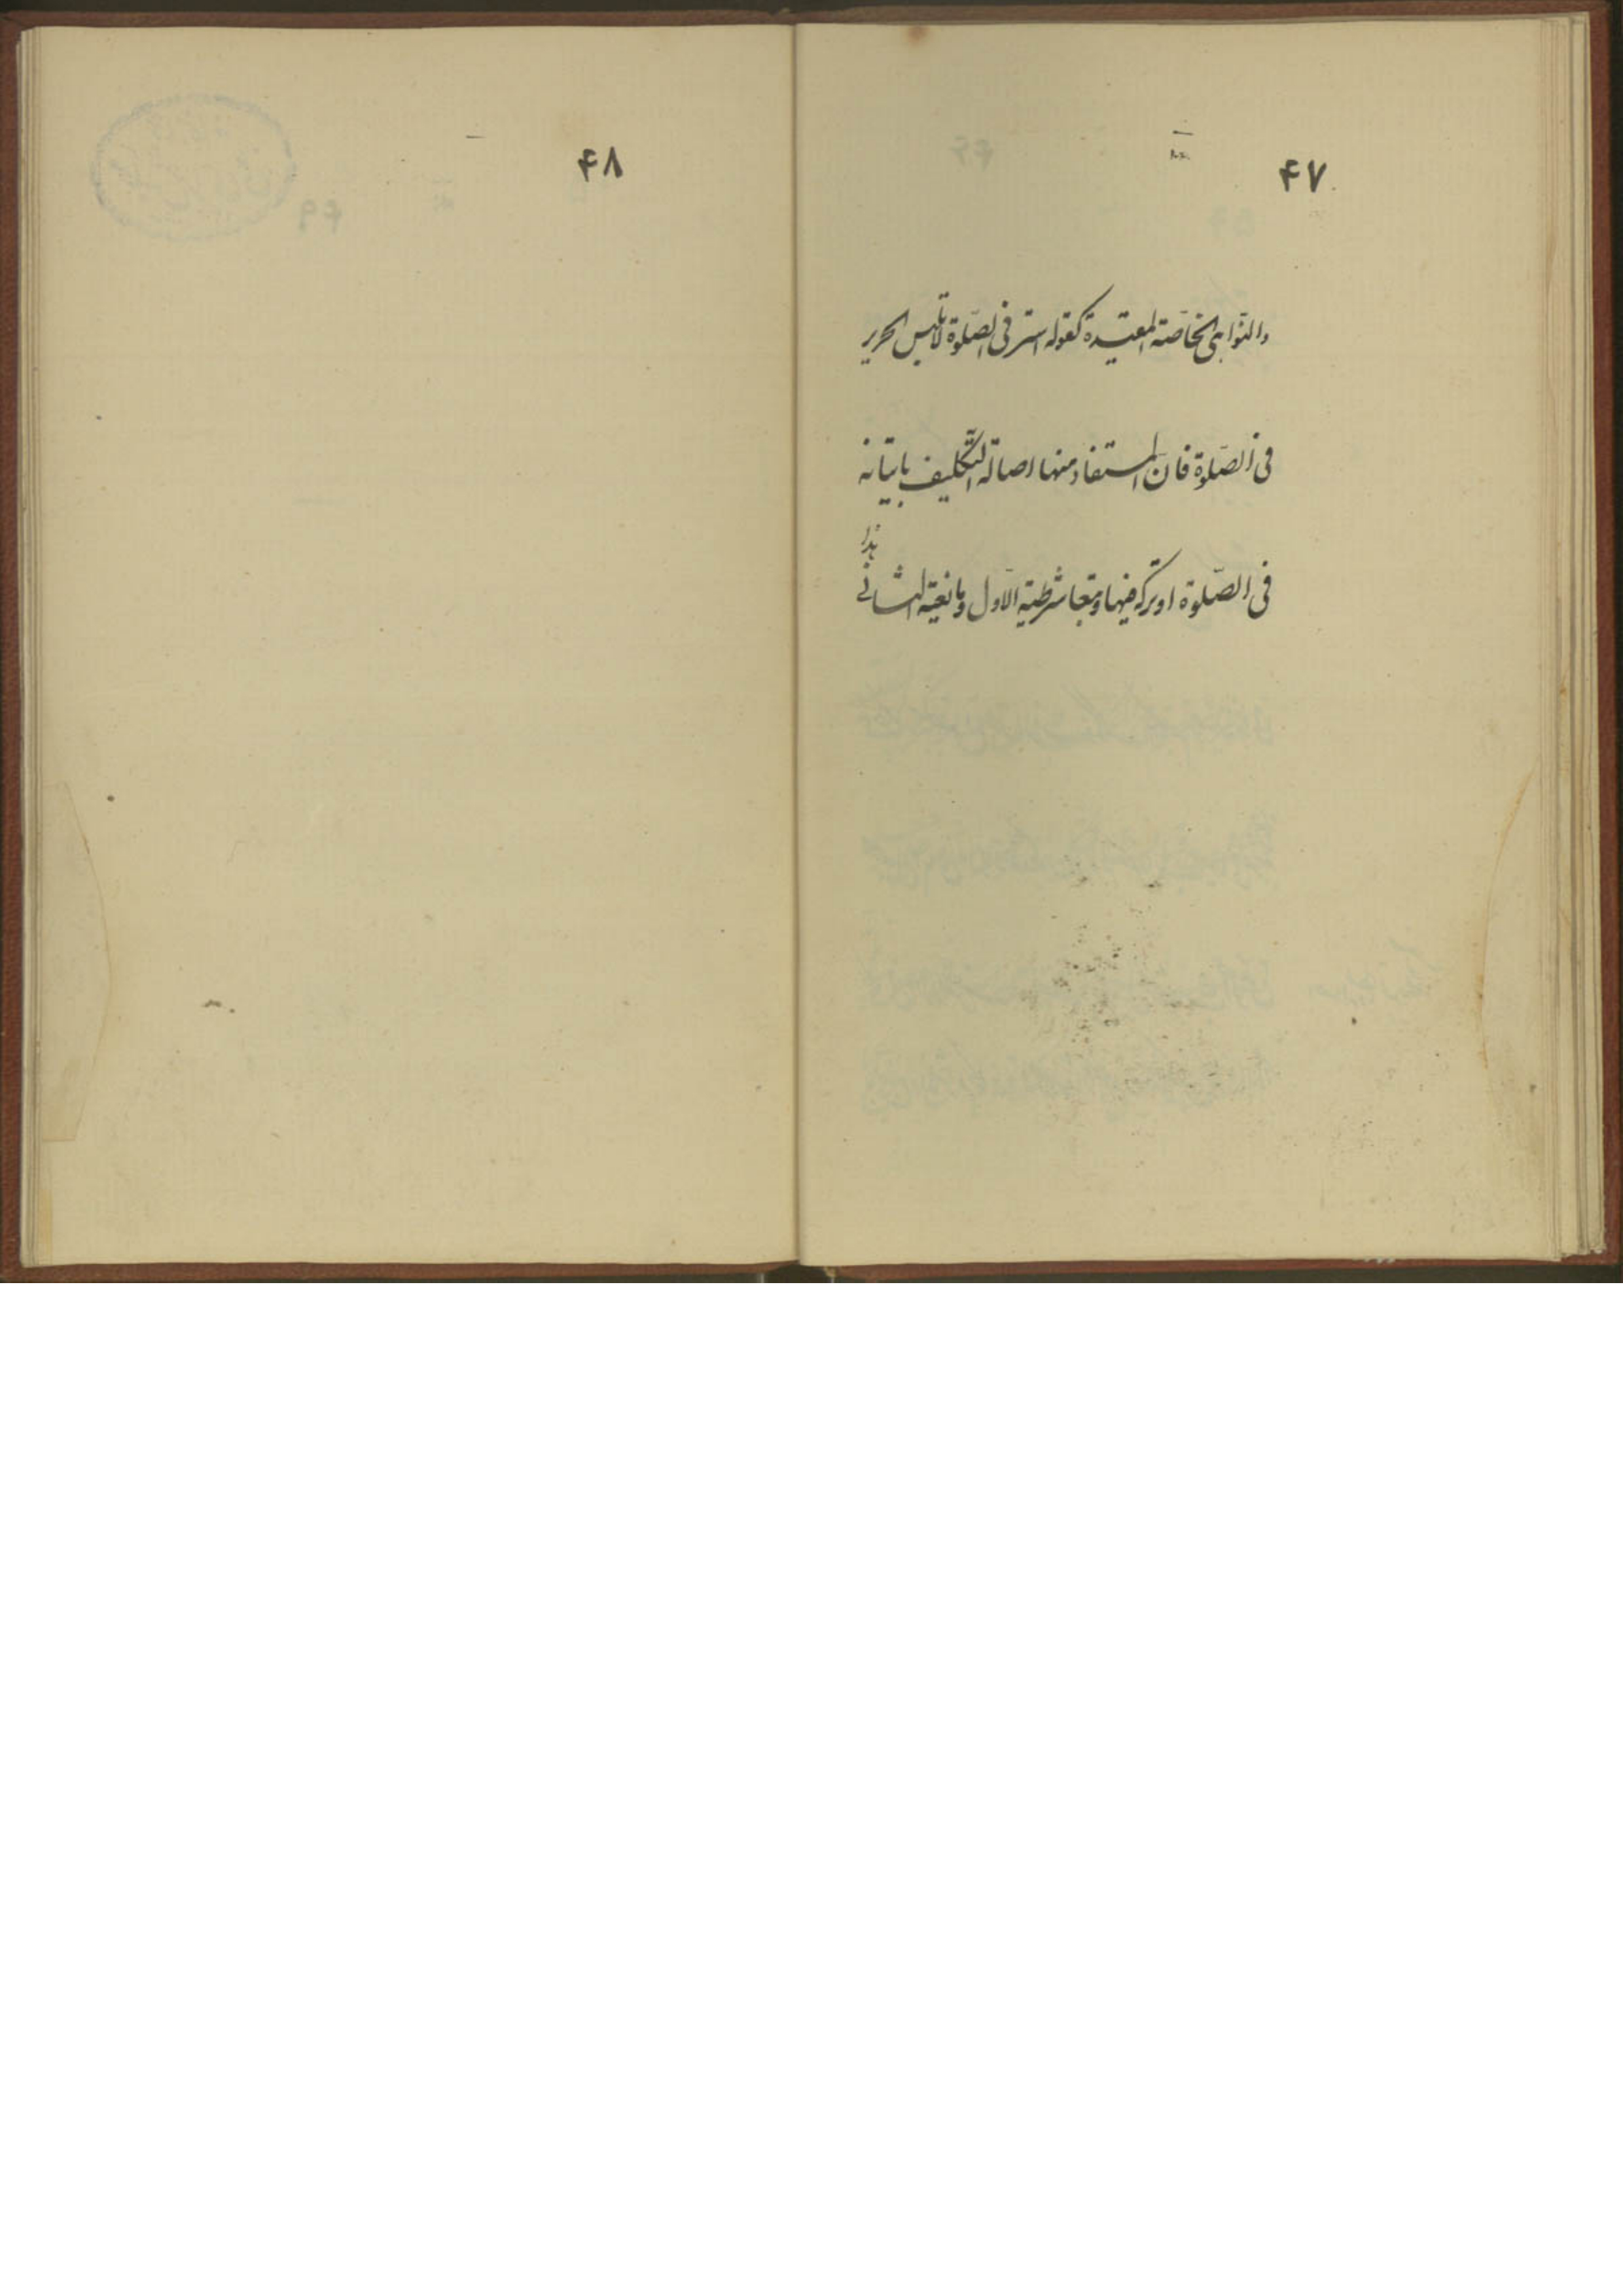 ۴۷
والنّواهى الخاصّة المقيّدة كقوله استر فى الصّلوة لا تلبس الحرير
فى الصّلوة فان المستفاد منها اصالة التّكليف باتيانه
فى الصّلوة او تركه فيها وتبعا شرطية الاول ومانعية الثانى
هذا
۴۸